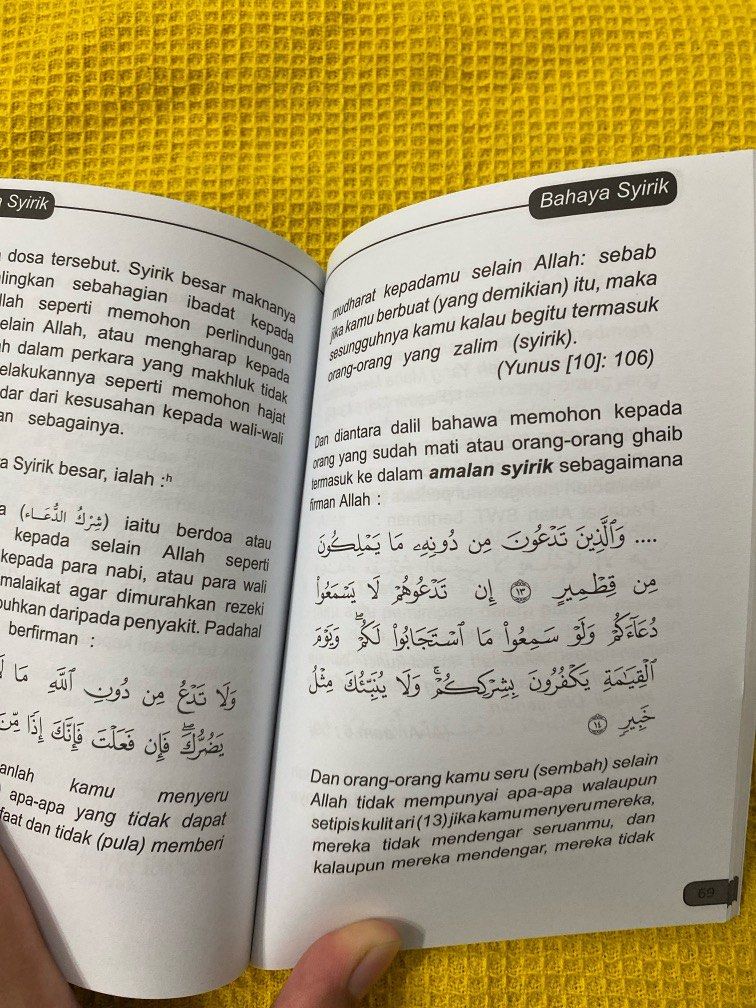 Syirik
dosa tersebut. Syirik besar maknanya
lingkan sebahagian ibadat kepada
llah seperti memohon perlindungan
elain Allah, atau mengharap kepada
h dalam perkara yang makhluk tidak
elakukannya seperti memohon hajat
dar dari kesusahan kepada wali-wali
an sebagainya.
a Syirik besar, ialah :h
a (شِرْكُ الدُّعَـــاء) iaitu berdoa atau
kepada selain Allah seperti
kepada para nabi, atau para wali
malaikat agar dimurahkan rezeki
uhkan daripada penyakit. Padahal
berfirman :
وَلَا تَدْعُ مِن دُونِ ٱللَّهِ مَا لَا
يَضُرُّكَ ۖ فَإِن فَعَلْتَ فَإِنَّكَ إِذًا مِّنَ
anlah kamu menyeru
apa-apa yang tidak dapat
faat dan tidak (pula) memberi
Bahaya Syirik
mudharat kepadamu selain Allah: sebab
jika kamu berbuat (yang demikian) itu, maka
sesungguhnya kamu kalau begitu termasuk
orang-orang yang zalim (syirik).
(Yunus [10]: 106)
Dan diantara dalil bahawa memohon kepada
orang yang sudah mati atau orang-orang ghaib
termasuk ke dalam amalan syirik sebagaimana
firman Allah :
.... وَٱلَّذِينَ تَدْعُونَ مِن دُونِهِۦ مَا يَمْلِكُونَ
مِن قِطْمِيرٍ ١٣ إِن تَدْعُوهُمْ لَا يَسْمَعُوا۟
دُعَآءَكُمْ وَلَوْ سَمِعُوا۟ مَا ٱسْتَجَابُوا۟ لَكُمْ ۖ وَيَوْمَ
ٱلْقِيَـٰمَةِ يَكْفُرُونَ بِشِرْكِكُمْ ۚ وَلَا يُنَبِّئُكَ مِثْلُ
خَبِيرٍ ١٤
Dan orang-orang kamu seru (sembah) selain
Allah tidak mempunyai apa-apa walaupun
setipis kulit ari (13) jika kamu menyeru mereka,
mereka tidak mendengar seruanmu, dan
kalaupun mereka mendengar, mereka tidak
69